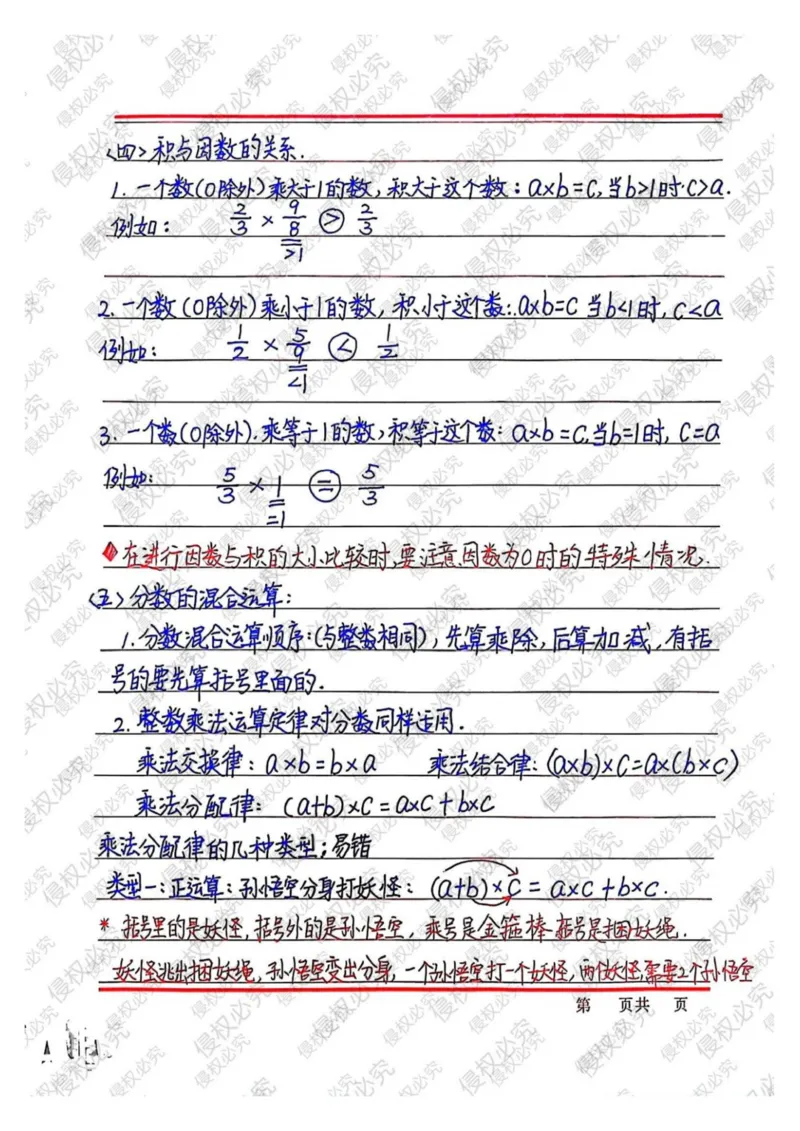 <四>积与因数的关系.
1. 一个数(0除外)乘大于1的数,积大于这个数:a×b=C,当b>1时C>a.
例如: 2/3 × 9/8 > 2/3
>1
2. 一个数(0除外)乘小于1的数,积小于这个数:a×b=C 当b<1时,C<a
例如: 1/2 × 5/9 < 1/2
<1
3. 一个数(0除外).乘等于1的数,积等于这个数:a×b=C.当b=1时,C=a
例如: 5/3 × 1 = 5/3
=1
◆在进行因数与积的大小比较时,要注意因数为0时的特殊情况.
<五>分数的混合运算:
1.分数混合运算顺序:(与整数相同),先算乘除,后算加减,有括
号的要先算括号里面的.
2. 整数乘法运算定律对分数同样适用.
乘法交换律:a×b=b×a 乘法结合律:(a×b)×C=a×(b×c)
乘法分配律: (a+b)×C=a×C+b×C
乘法分配律的几种类型;易错
类型一:正运算:孙悟空分身打妖怪: (a+b)×C=a×c+b×c.
* 括号里的是妖怪,括号外的是孙悟空,乘号是金箍棒 括号是捆妖绳.
妖怪逃出捆妖绳,孙悟空变出分身,一个孙悟空打一个妖怪,两个妖怪需要2个孙悟空
第 页共 页
侵权必究